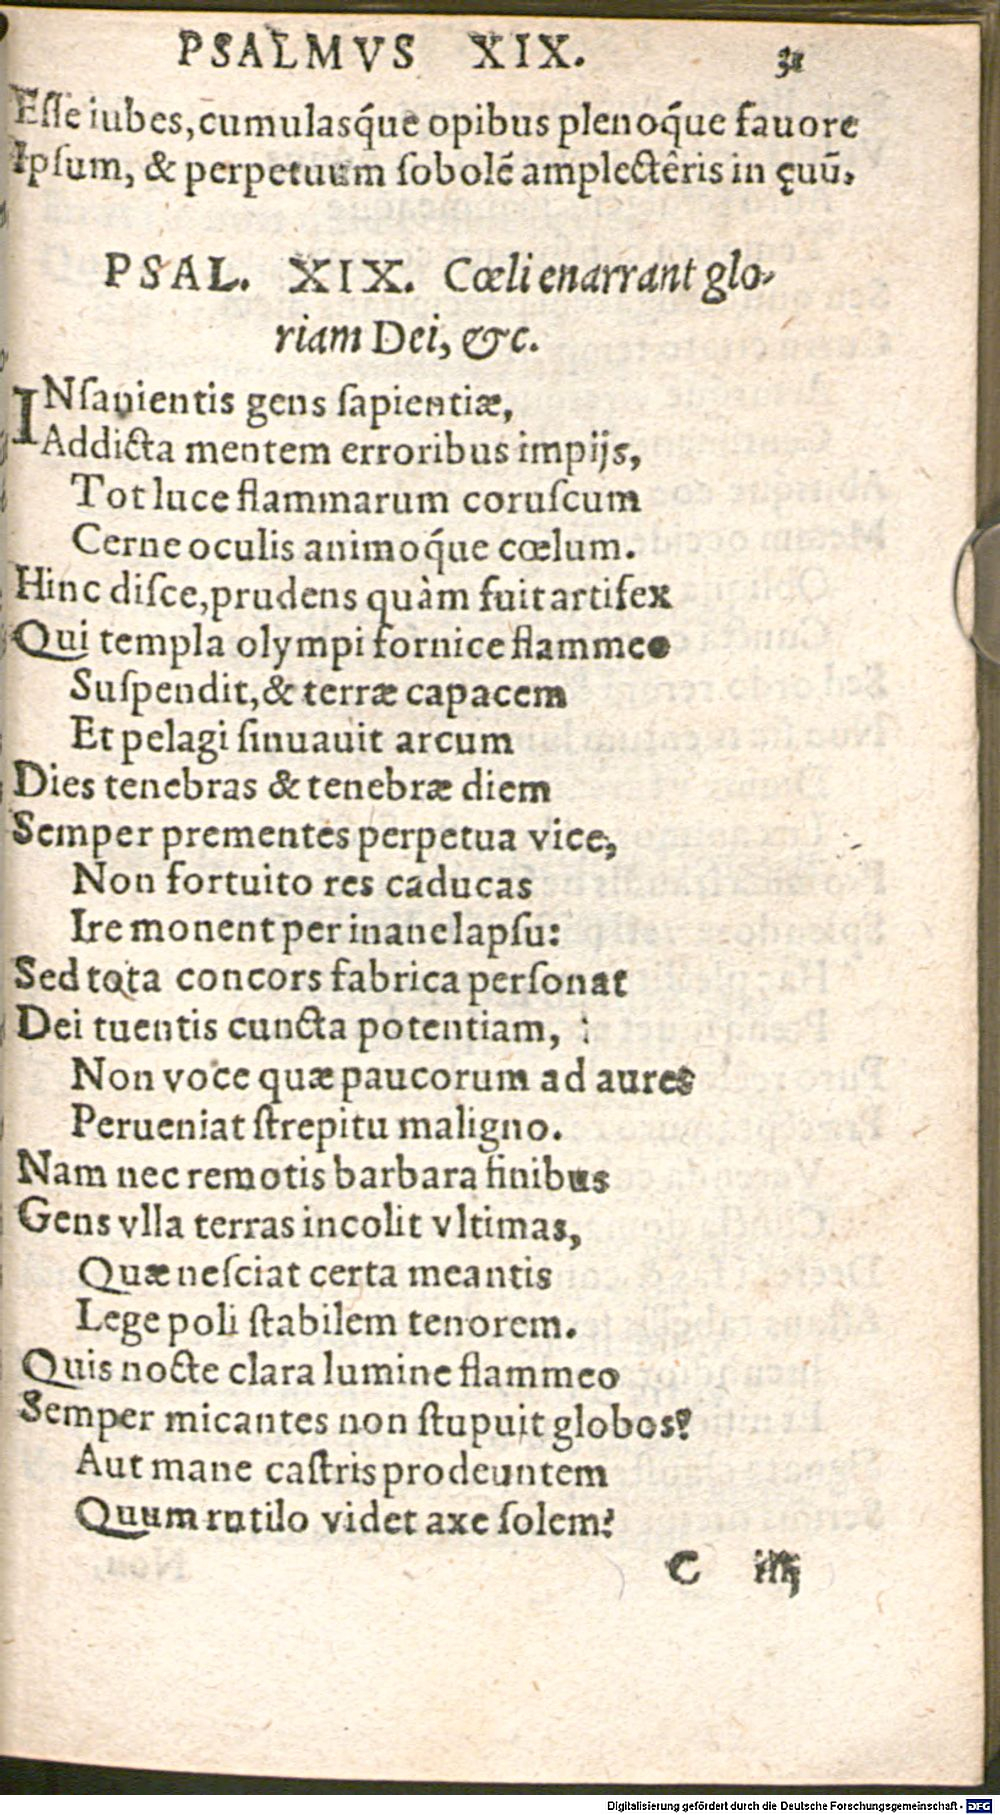 PSALMVS XIX. 31
Eſſe iubes, cumulasq́ue opibus plenoq́ue fauore
Ipſum, & perpetuum ſobolē amplectêris in ęuū.
PSAL. XIX. Cœli enarrant glo-
riam Dei, &c.
INſanientis gens ſapientiæ,
Addicta mentem erroribus impijs,
Tot luce flammarum coruſcum
Cerne oculis animoq́ue cœlum.
Hinc diſce, prudens quàm fuit artifex
Qui templa olympi fornice flammeo
Suſpendit, & terræ capacem
Et pelagi ſinuauit arcum
Dies tenebras & tenebræ diem
Semper prementes perpetua vice,
Non fortuito res caducas
Ire monent per inane lapſu:
Sed tota concors fabrica perſonat
Dei tuentis cuncta potentiam,
Non voce quæ paucorum ad aures
Perueniat ſtrepitu maligno.
Nam nec remotis barbara finibus
Gens vlla terras incolit vltimas,
Quæ neſciat certa meantis
Lege poli ſtabilem tenorem.
Quis nocte clara lumine flammeo
Semper micantes non ſtupuit globos?
Aut mane caſtris prodeuntem
Quum rutilo videt axe ſolem?
C iiij
Digitalisierung gefördert durch die Deutsche Forschungsgemeinschaft - DFG